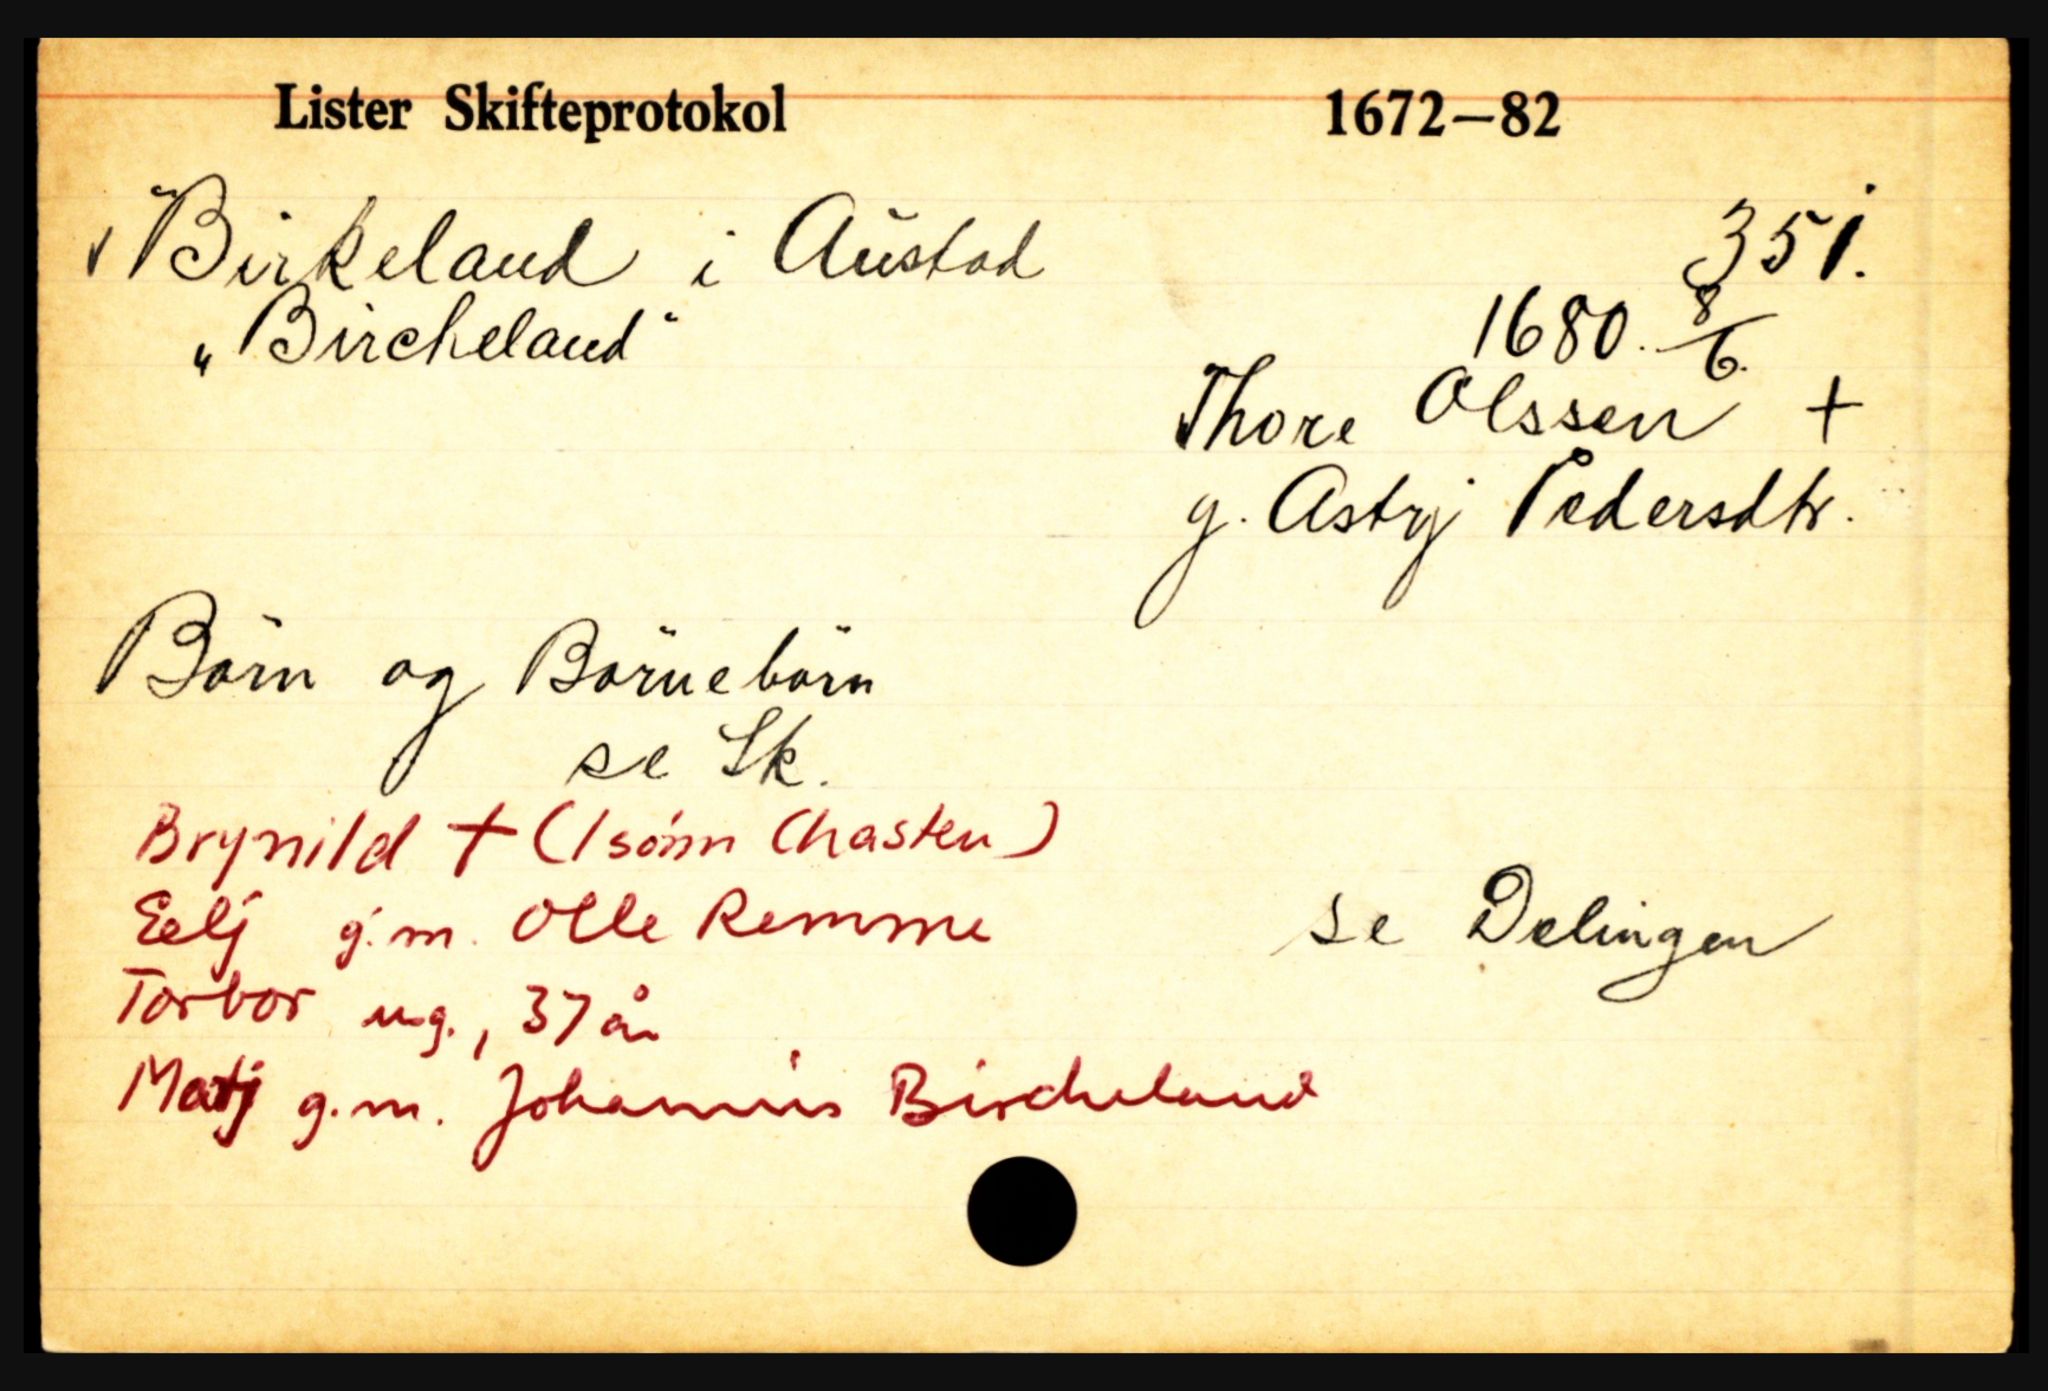 Lister Skifteprotokol 1672–82
Birkeland i Austad 351.
„Bircheland“
1680. 8/6.
Thore Olssen +
g. Astrj Pedersdtr.
Börn og Börnebörn
se Sk.
Brynild + (1 sönn Chasten)
Eelj g.m. Olle Remme
se Delingen
Torbor ug., 37 år
Matj g.m. Johannis Bircheland